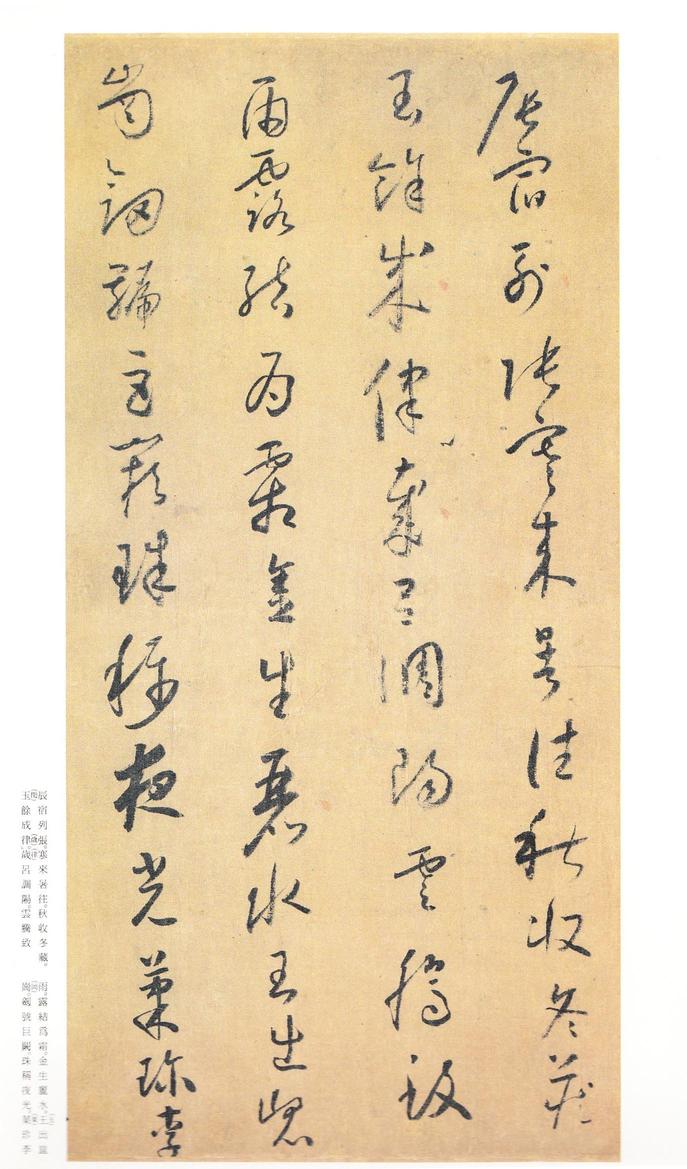 辰宿列張寒来暑往秋收冬藏
玉餘成律歲呂調陽雲騰致
雨露結為霜金生麗水王出崑
崗劔號巨闕珠稱夜光菓珍李
辰宿列張。寒來暑往。秋收冬藏。
玉餘成律。歲呂調陽。雲騰致
雨。露結爲霜。金生麗水。王出崑
崗。劔號巨闕。珠稱夜光。菓珍李